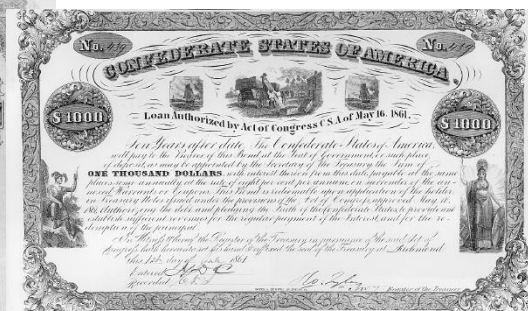 No.
No.
CONFEDERATE STATES OF AMERICA.
Loan Authorized by Act of Congress C.S.A of May 16. 1861.
$1000
$1000
Ten Years after date, The Confederate States of America,
will pay to the Bearer of this Bond at the Seat of Government or such place
of deposit as may be appointed by the Secretary of the Treasury the Sum of
ONE THOUSAND DOLLARS, with interest thereon from this date, payable at the same
places semi annually at the rate of eight per cent per annum on surrender of the an-
nexed Warrants or Coupons. This Bond is
in Treasury Notes issued under the provisions of the Act of Congress, approved May 16,
1861, Authorizing the debt, and pledging the Faith of the Confederate States to provide and
establish sufficient revenues for the regular payment of the Interest, and for the re-
demption of the principal.
In Witness Whereof the Register of the Treasury in pursuance of the said Act of
Congress hath hereunto set his hand & affixed the seal of the Treasury at Richmond
this 1st day of 1861
Entered
Recorded
Register of the Treasury